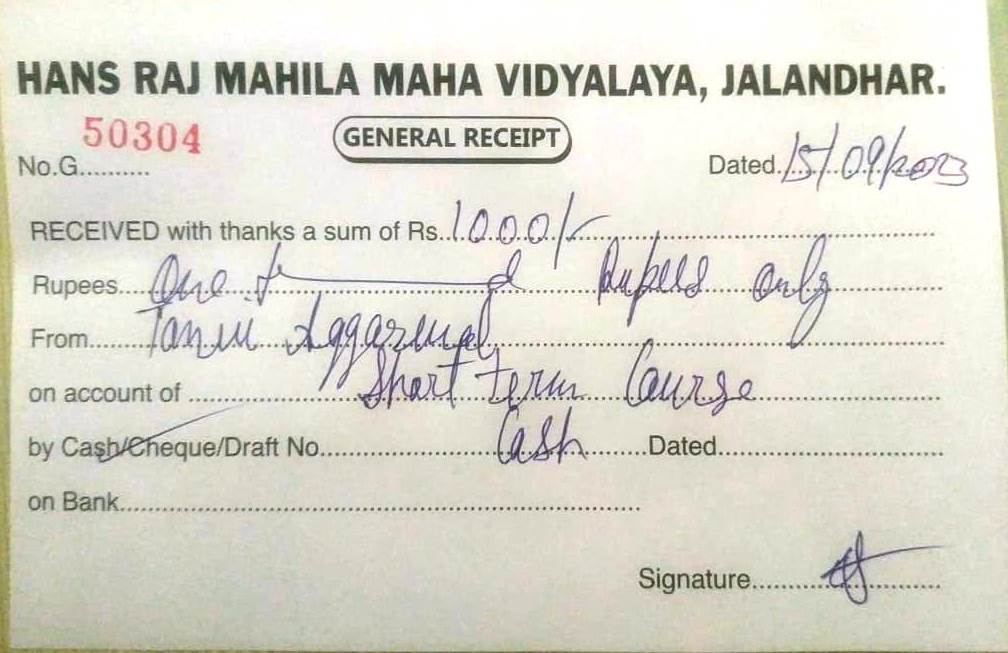 HANS RAJ MAHILA MAHA VIDYALAYA, JALANDHAR.
50304
GENERAL RECEIPT
No.G.......... Dated 15/09/2023
RECEIVED with thanks a sum of Rs. 1000/-
Rupees One Rupees only
From Tanu Aggarwal
on account of Short term Course
by Cash/Cheque/Draft No. Cash Dated
on Bank
Signature